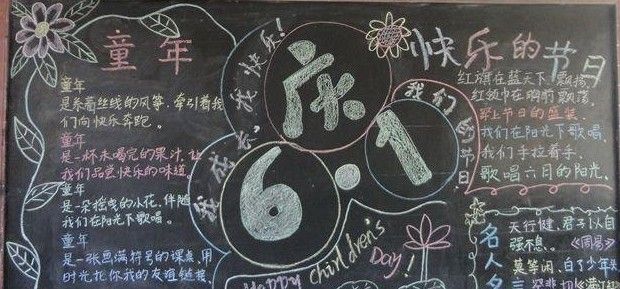 童年
童年
是系着丝线的风筝,牵引着我
们向快乐奔跑。
童年
是一杯未喝完的果汁,让
我们品尝快乐的味道
童年
是一朵摇曳的小花,伴随
我们在阳光下歌唱。
童年
是一张画满符号的课表,用
时光把你我的友谊链接
我成长,我快乐!
庆
6·1
我们的节日
Happy Children's
Day!
快乐的节日
红旗在蓝天下飘扬
红领巾在胸前飘荡
穿上节日的盛装
我们在阳光下歌唱
我们手拉着手
歌唱六月的阳光
名人名
天行健,君子以自
强不息。《周易》
莫等闲,白了少年头
空悲切《满江红